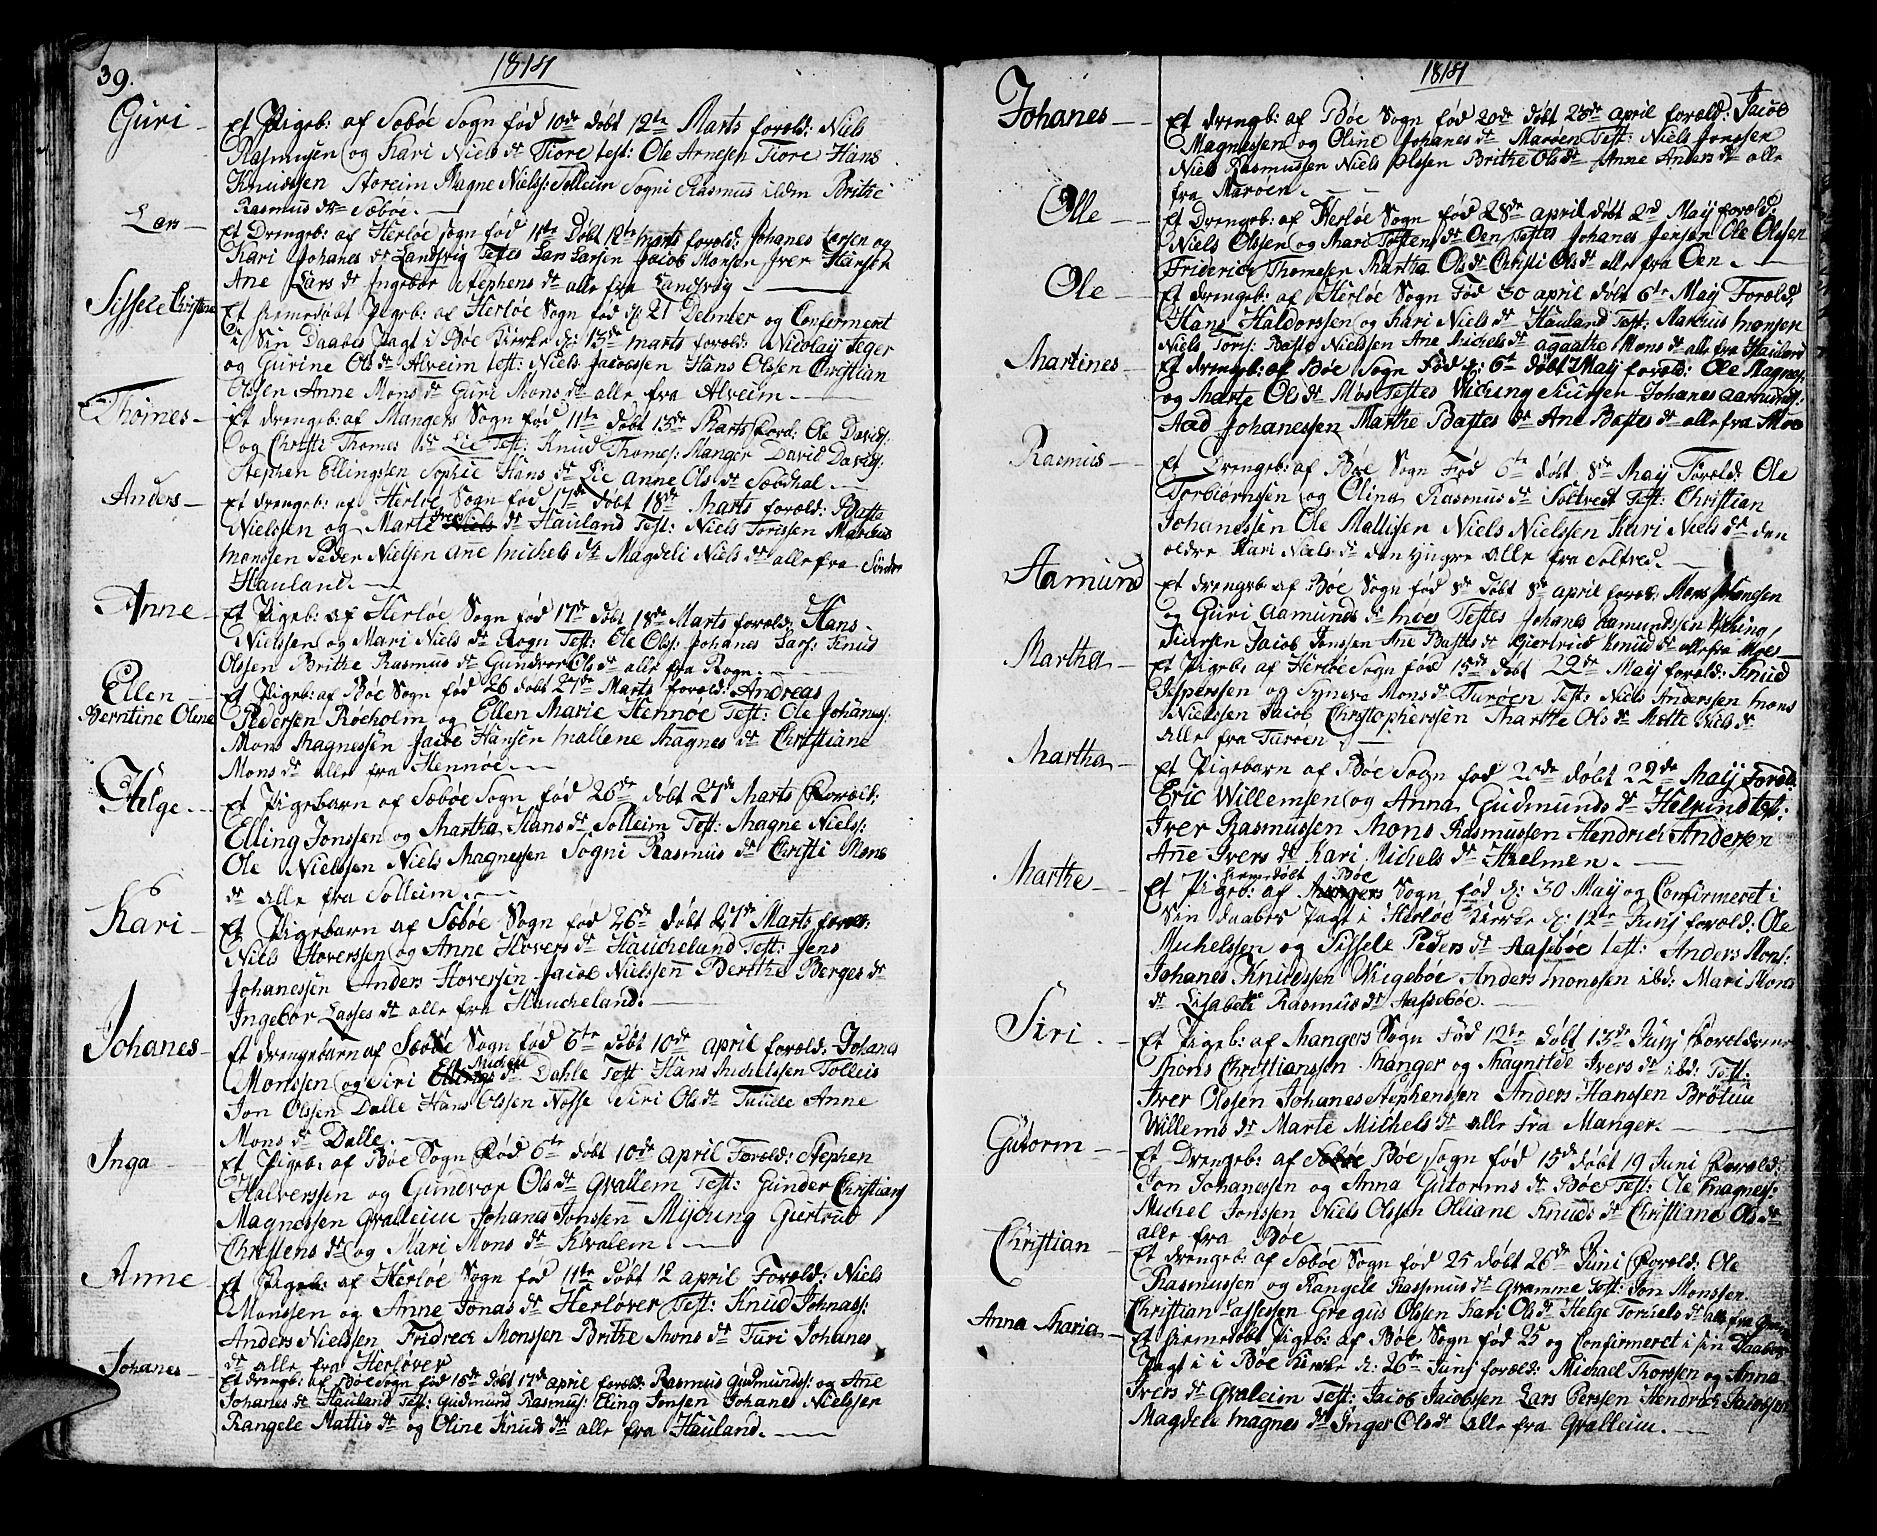 39.
1814
Guri
Et Pigeb: af Sæbøe Sogn fød 10de døbt 12te Marts forold: Niels
Rasmusen og Kari Niels dr Fiore test: Ole Arnesen Fiore Hans
Knudssen Storeim Magne Nielss: Solleim Sogni Rasmus ibdm Brithe
Rasmus dr Sæbøe.
Lars
Et Drengeb: af Herløe sogn fød 11te Døbt 12te marts forold: Johanes Larsen og
Kari Johanes dr Landsvig Testes Lars Larsen Jacob Monsen Iver Hansen
Ane Lars dr Ingebor Stephens dr alle fra Landsvog
Sissele Christine
Et hiemedøbt Pigeb: af Herløe Sogn fød d: 21 Debmber og Conferment
i Sin Daabes Pagt i Bøe Kirke d: 13de marts forold: Nicolay Jeger
og Gurine Ols dr Alveim test: Niels Jacobssen Hans Olssen Christian
Olssen Anne Mons dr Guri Mons dr alle fra Alveim
Thomes
Et drengeb: af Mangers Sogn fød 11te døbt 13de Marts Forold: Ole Davids:
og Christi Thomes dr Lie Test: Knud Thomes: Manger David Davids:
Stephen Ellingsen Sophie Hans dr Lie Anne Ols dr Sæbdhal
Anders
Et drengeb: af Herløe Sogn fød 17de døbt 18de Marts forold: Baste
Nielssen og Marte Niels dr Hauland Test: Niels Torissen Marcus
Monssen Peder Nielsen Ane Michels dr Magdeli Niels dr alle fra Sønder
Hauland.
Anne
Et Pigeb: af Herløe Sogn fød 17de døbt 18de Marts forold: Hans
Nielssen og Mari Niels dr Rogn Test: Ole Olss: Johanes Lars: Knud
Olssen Brithe Rasmus dr Gundvor Ols dr alle fra Rogn.
Ellen
Berntine Olene
Et Pigeb: af Bøe Sogn fød 26 døbt 27de Marts forold: Andreas
Pedersen Roeholm og Ellen Marie Hennøe Test: Ole Johaness:
Mons Magnessen Jacob Hansen Mallene Magnes dr Christiane
Mons dr alle fra Hennøe
Helge
Et Pigebarn af Sæbøe Sogn fød 26de døbt 27de Marts Forold:
Elling Jonssen og Martha Hans dr Solleim Test: Magne Nielss:
Ole Nielssen Niels Magnessen Sogni Rasmus dr Christi Mons
dr alle fra Solleim
Kari
Et Pigebarn af Sæbøe Sogn fød 26de døbt 27de Marts forol:
Niels Hoverssen og Anne Hovers dr Haucheland Test: Jens
Johanessen Anders Hoversen Jacob Nielssen Berithe Berges dr
Ingebor Lasses dr alle fra Haucheland.
Johanes
Et drengebarn af Sæbøe Sogn fød 6te døbt 10de april forold: Johanes
Monssen og Siri Michels dr Dahle Test: Hans Michelssen Tolleis
Jon Olssen Dalle Hans Olssen Nosse Siri Ols dr Anne
Mons dr Dalle.
Inga
Et Pigeb: af Bøe Sogn Fød 6te døbt 10de april Forold: Stephen
Halverssen og Gundvor Ols dr Qvallem Test: Gunder Christians
Magnessen Qvalleim Johanes Jonssen Mijching Giertrud
Christens dr og Mari Mons dr Kvalem.
Anne
Et Pigeb: af Herløe Sogn fød 11te døbt 12 april Forold: Niels
Monssen og Anne Jonas dr Herløver Test: Knud Johnass:
Anders Nielssen Fridrech Monssen Brithe Mons dr Turi Johanes
dr alle fra Herløver
Johanes
Et drengeb: af Bøe sogn fød 16de døbt 17de april forold: Rasmus Gudmundss: og Ane
Johanes dr Hauland Test: Gudmund Rasmus: Elling Jonsen Johanes Nielssen
Rangele Mattis dr og Oline Knuds dr alle fra Hauland.
1814
Johanes
Et drengb: af Bøe Sogn fød 20de døbt 23de april forold: Jacob
Magnessen og Oline Johanes dr Marøen Test: Niels Jonssen
Niels Rasmussen Niels Olssen Brithe Ols dr Anne Anders dr alle
fra Marøen.
Olle
Et Drengeb: af Herløe Sogn fød 28de april døbt 2nd May forold:
Niels Olssen og Mari Tosten dr Oen Testes Johanes Jensen Ole Olssen
Friderich Thomesen Martha Ols dr Christi Ols dr alle fra Oen.
Ole
Et drengeb: af Herløe Sogn Fød 30 april døbt 6te May Forold:
Hans Haldorssen og Kari Niels dr Hauland Test: Marcus Monsen
Niels Toris: Baste Nielssen Ane Michels dr agaathe Mons dr alle fra Hauland
Martines
Et drengeb: af Bøe Sogn Fød d: 6t døbt May forold: Ole Magnes:
og Marte Ols dr Møs Testes Viching Siursen Johanes Aamunds:
Aad Johanessen Marthe Bastes dr Ane Bastes dr alle fra Moes
Rasmus
Et Drengeb: af Bøe Sogn Fød 6te døbt 8de May Forold: Ole
Torbiornsen og Olina Rasmus dr Soltvest Test: Christian
Johanessen Ole Mallissen Niels Nielssen Kari Niels dr den
oldre Kari Niels dr den yngre alle fra Soltved.
Aamund
Et drengeb af Bøe Sogn fød 8de døbt 8de april forol: Mons Hansen
og Guri Aamunds dr Moes Testes Johanes Aamundssen Viching
Siursen Jacob Jonssen Ane Bastes dr Gjertrud Knud dr alle fra Moes
Martha
Et Pigeb: af Herløe Sogn fød 15de døbt 22de May forold: Knud
Jesperssen og Syneva Mons dr Turøen Test: Niels Anderssen Mons
Nielssen Jacob Christopherssen Marthe Ols dr Mette Niels dr
alle fra Turøen.
Martha
Et Pigebarn af Bøe Sogn fød 20de døbt 22de May forold:
Eric Willemsen og Anna Gudmunds dr Helvind test:
Iver Rasmussen Mons Rasmussen Hendrich Andersen
Ane Ivers dr Kari Michels dr Hielmen.
Marthe
Et hiemedøbt Pigeb: af Bøe Sogn fød d: 30 May og Confirmeret i
Sin daabes Pagt i Herløe Kirke d: 12te Junj forold: Ole
Michelssen og Sissele Peders dr Aasebøe test: Anders Mons:
Johanes Knudssen Wigebøe Anders Monssen ibd: Mari Mons
dr Lisabete Rasmus dr Aassebøe.
Siri
Et Pigeb: af Mangers Sogn Fød 12te døbt 13de Junj Forældrene
Thons Christianssen Manger og Magnilde Ivers dr ibd: Test:
Iver Olssen Johanes Stephenssen Anders Hanssen Brøtun
Willems dr Marte Michels dr alle fra Manger.
Gutorm
Et Drengeb: af Bøe Sogn fød 15de døbt 19 Juni Forold:
Jon Johanessen og Anna Gutorms dr Bøe Test: Ole Magness:
Michel Jonssen Niels Olssen Olliane Knuds dr Christiane Ols dr
alle fra Bøe
Christian
Et drengeb: af Sæbøe Sogn fød 25 døbt 26de Juni Forold: Ole
Rasmussen og Rangele Rasmus dr Gramme Test: Jon Monssen
Christian Lassessen Gregus Olssen Kari Ols dr Helge Torniels dr alle fra
Anna Maria
Et hiemedøbt Pigeb: af Bøe Sogn fød 25 og Confirmeret i sin Daabes
Pagt i i Bøe Kirke d: 26te Junj forold: Michael Thorssen og Anna
Ivers dr Qvaleim Test: Jacob Jacobssen Lars Perssen Hendrich Jacobssen
Magdele Magnes dr Inger Ols dr alle fra Qvalleim.